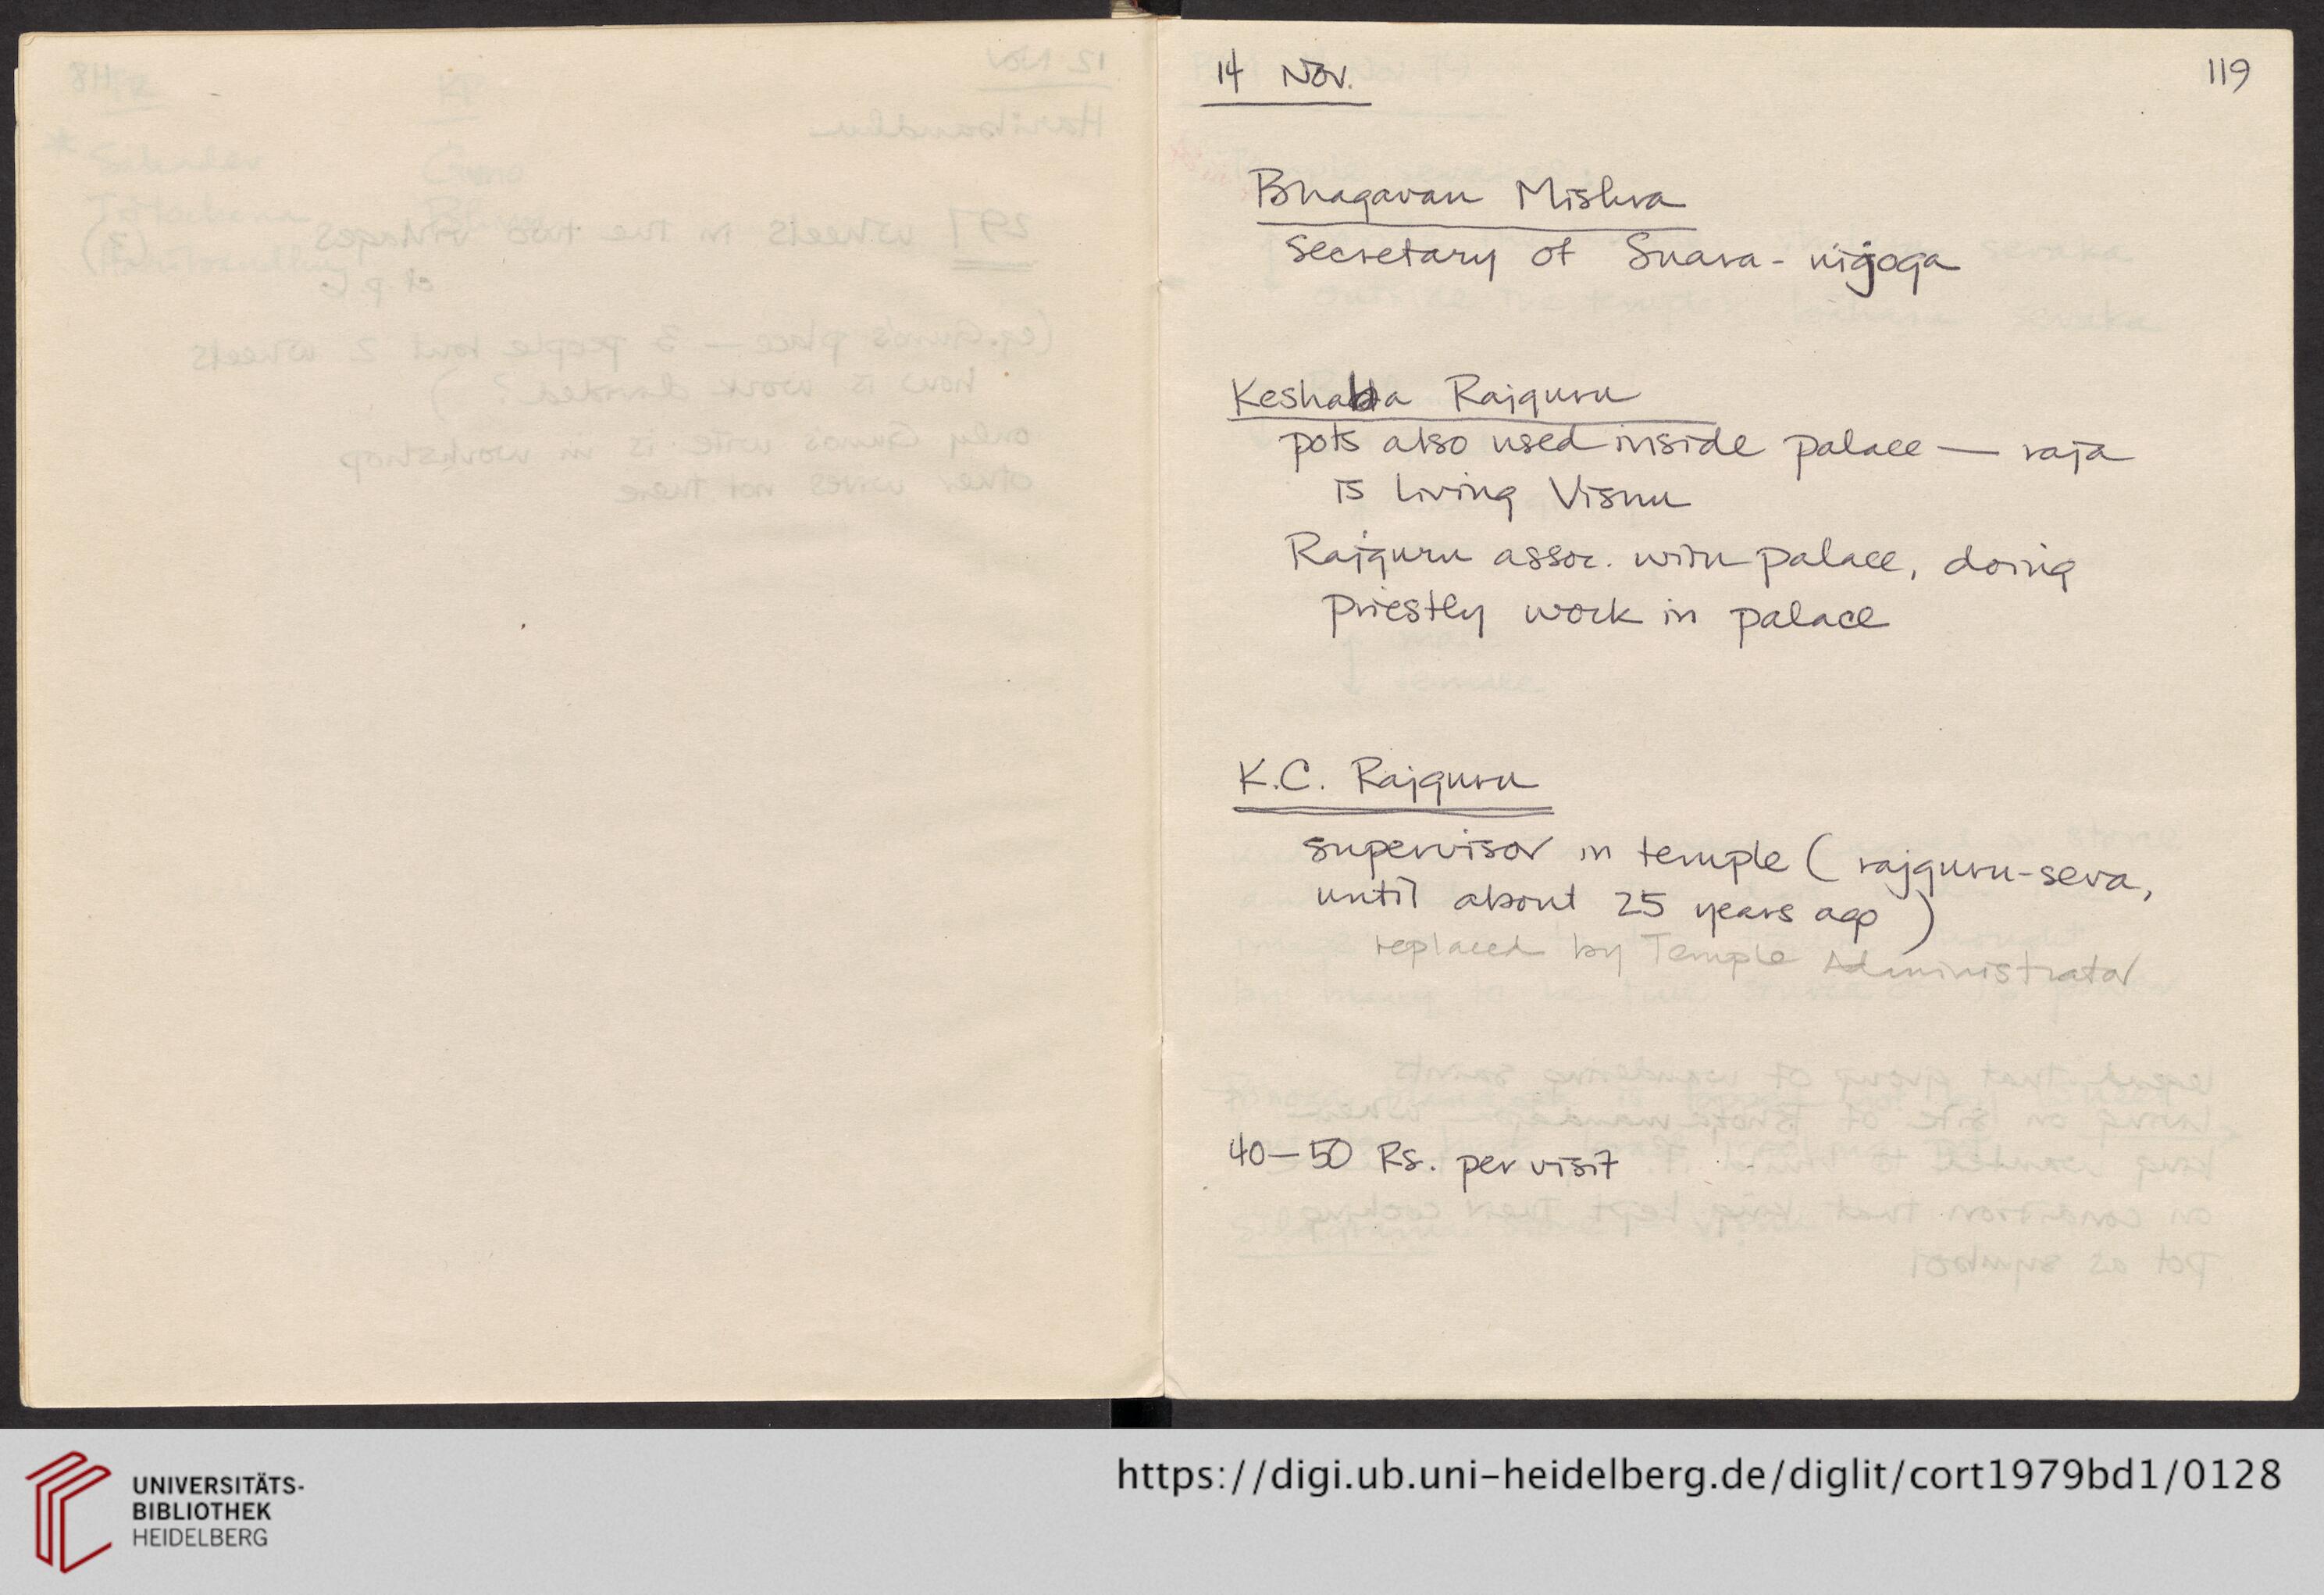 14 Nov.
119
Bhagavan Mishra
secretary of Suara-nijoga
Keshabha Rajguru
pots also used inside palace — raja
is living Visnu
Rajguru assoc. with palace, doing
priestly work in palace
K.C. Rajguru
supervisor in temple (rajguru-seva,
until about 25 years ago)
replaced by Temple Administrator
40–50 Rs. per visit
UNIVERSITÄTS-
BIBLIOTHEK
HEIDELBERG
https://digi.ub.uni-heidelberg.de/diglit/cort1979bd1/0128